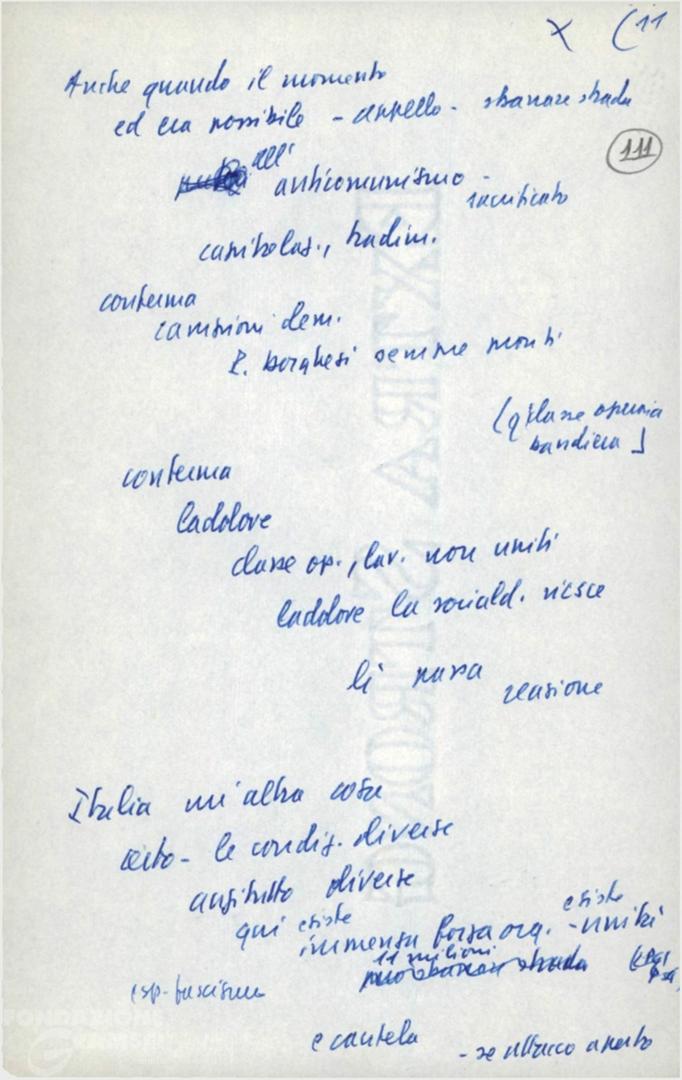 X (11
Anche quando il momento
ed era possibile - appello - sbarrare strada
111
all'
anticomunismo -
sacrificato
capitolaz., tradim.
conferma
campioni dem.
P. borghesi sempre pronti
(q classe operaia
bandiera]
conferma
laddove
classe op., lav. non uniti
laddove la sociald. riesce
lì passa
reazione
Italia un'altra cosa
certo - le condiz. diverse
anzitutto diverse
qui esiste
immensa forza org. - esiste unità
11 milioni
può sbarrare strada
esp. fascismo
e cautela
- se attacco aperto
EXTRA STRONG
FONDAZIONE